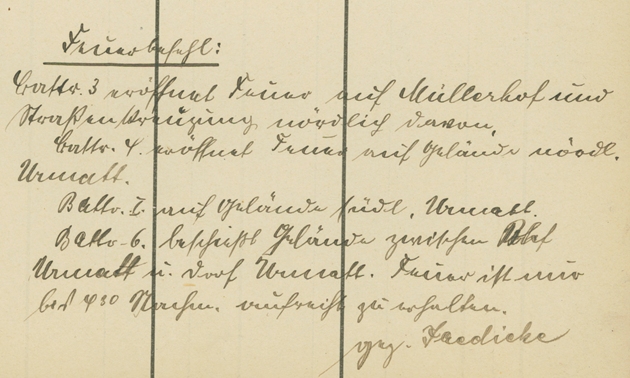 Feuerbefehl:
Battr. 3 eröffnet Feuer auf Müllerhof und
Straßenkreuzung nördlich davon.
Battr. 4. eröffnet Feuer auf Gelände nördl.
Urmatt.
Battr. I. auf Gelände südl. Urmatt.
Battr. 6. beschießt Gelände zwischen
Urmatt u. Dorf Urmatt. Feuer ist nur
bis 4³⁰ Nachm. aufrecht zu erhalten.
gez. Jaedicke